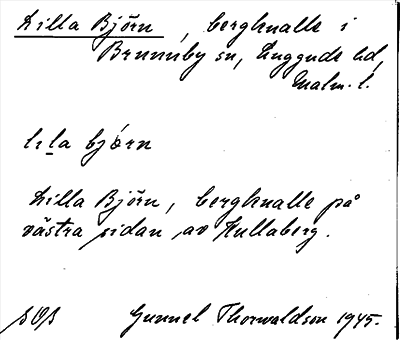 Lilla Björn, bergknalle i
Brunnby sn, Luggude hd,
Malm. l.
lila björn
Lilla Björn, bergknalle på
västra sidan av Kullaberg.
Gunnel Thorwaldson 1945.